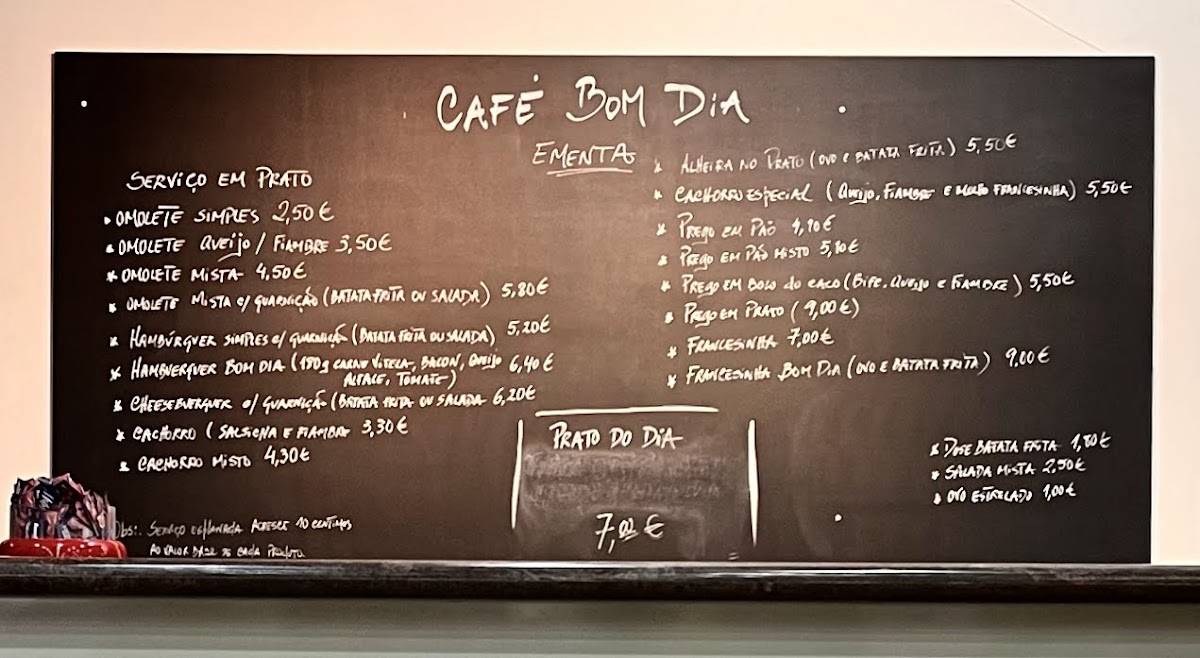 CAFÉ BOM DIA
EMENTA
SERVIÇO EM PRATO
OMOLETE SIMPLES 2,50€
OMOLETE QUEIJO / FIAMBRE 3,50€
OMOLETE MISTA 4,50€
OMOLETE MISTA C/ GUARNIÇÃO (BATATA FRITA OU SALADA) 5,80€
HAMBÚRGUER SIMPLES C/ GUARNIÇÃO (BATATA FRITA OU SALADA) 5,20€
HAMBUERGUER BOM DIA (150g CARNE VITELA, BACON, QUEIJO 6,40€
ALFACE, TOMATE)
CHEESEBUERGUER C/ GUARNIÇÃO (BATATA FRITA OU SALADA 6,20€
CACHORRO (SALSICHA E FIAMBRE 3,30€
CACHORRO MISTO 4,30€
Obs:. SERVIÇO ESPLANADA ACRESCE 10 CENTIMOS
AO VALOR BASE DE CADA PRODUTO
ALHEIRA NO PRATO (OVO E BATATA FRITA) 5,50€
CACHORRO ESPECIAL (QUEIJO, FIAMBRE E MOLHO FRANCESINHA) 5,50€
PREGO EM PÃO
PREGO EM PÃO MISTO
PREGO EM BOLO do CACO (BIFE, QUEIJO E FIAMBRE) 5,50€
PREGO EM PRATO (9,00€)
FRANCESINHA 7,00€
FRANCESINHA BOM DIA (OVO E BATATA FRITA) 9,00€
PRATO DO DIA
7,00 €
DOSE BATATA FRITA 1,80€
SALADA MISTA 2,50€
OVO ESTRELADO 1,00€